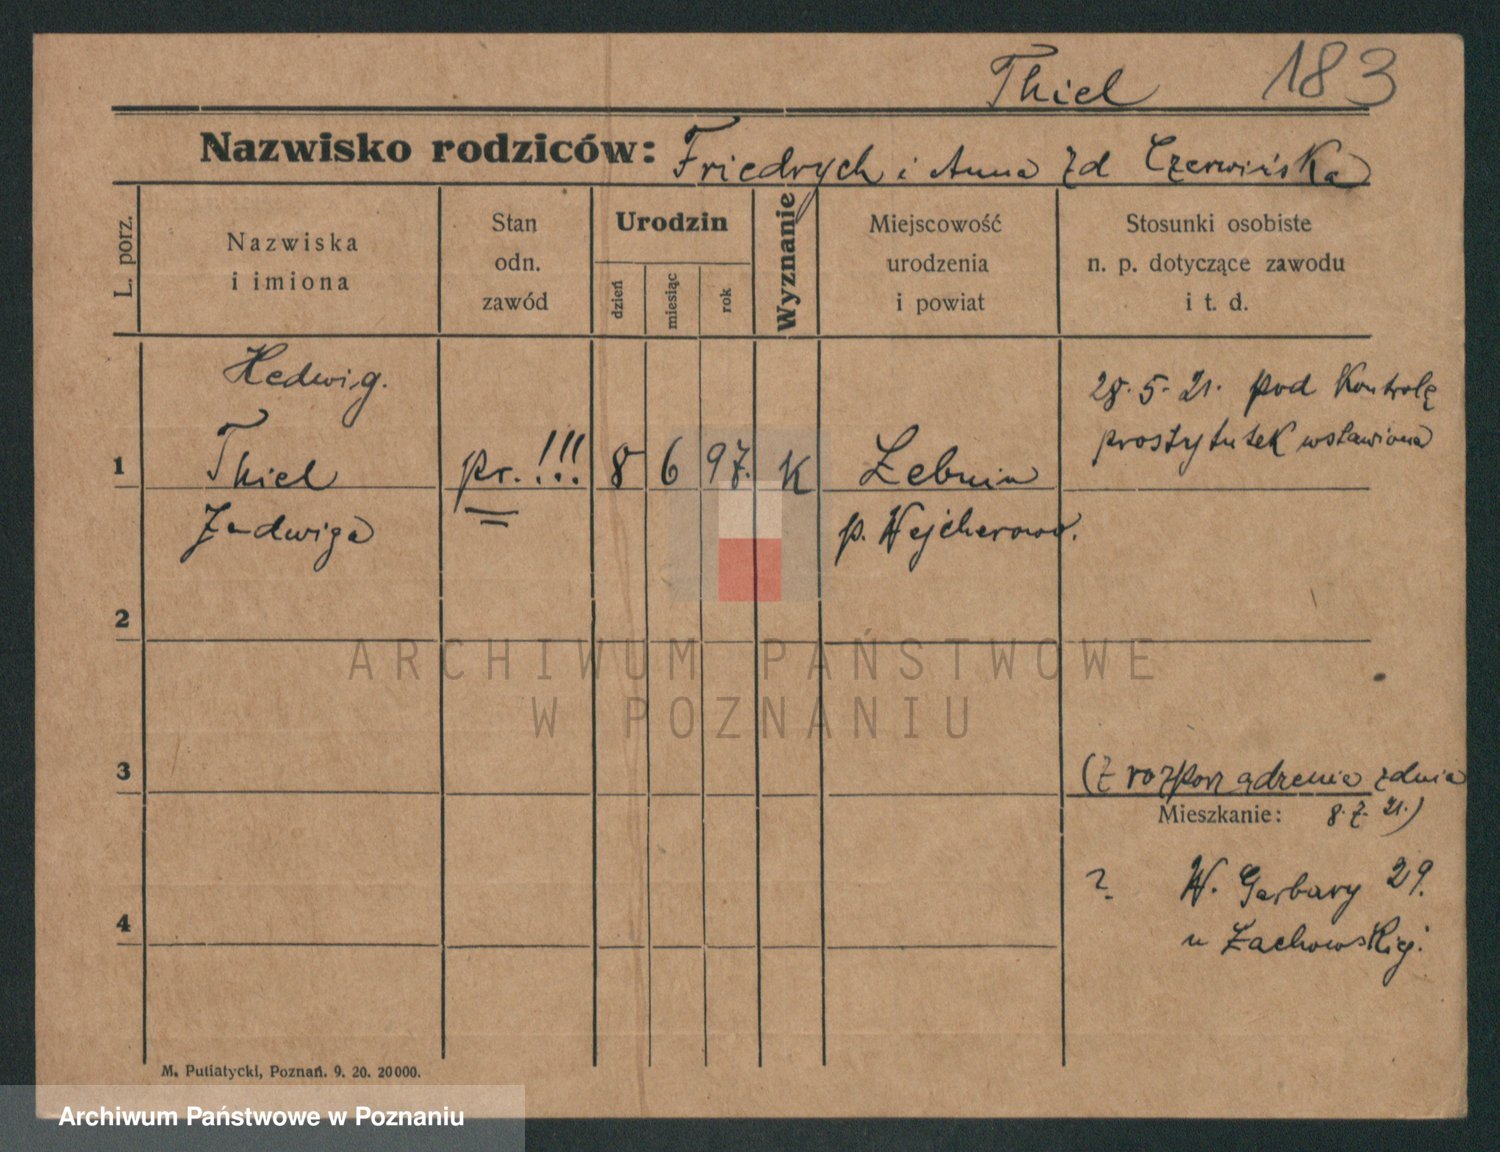 Thiel 183
Nazwisko rodziców: Friedrych i Anna zd Czerwińska
L. porz.
Nazwiska
i imiona
Stan
odn.
zawód
Urodzin
dzień
miesiąc
rok
Wyznanie
Miejscowość
urodzenia
i powiat
Stosunki osobiste
n. p. dotyczące zawodu
i t. d.
Hedwig.
1 Thiel pr. !!! 8 6 97. K
Jadwiga
p. Wejherowo.
28.5.21. pod Kontrolę
prostytutek wstawiona
2
3
(z rozporządzenia zdnia
8.7.21.)
Mieszkanie:
? W. Garbary 29.
u Żachowskiej.
4
M. Putiatycki, Poznań. 9. 20. 20000.
ARCHIWUM PAŃSTWOWE
W POZNANIU
Archiwum Państwowe w Poznaniu